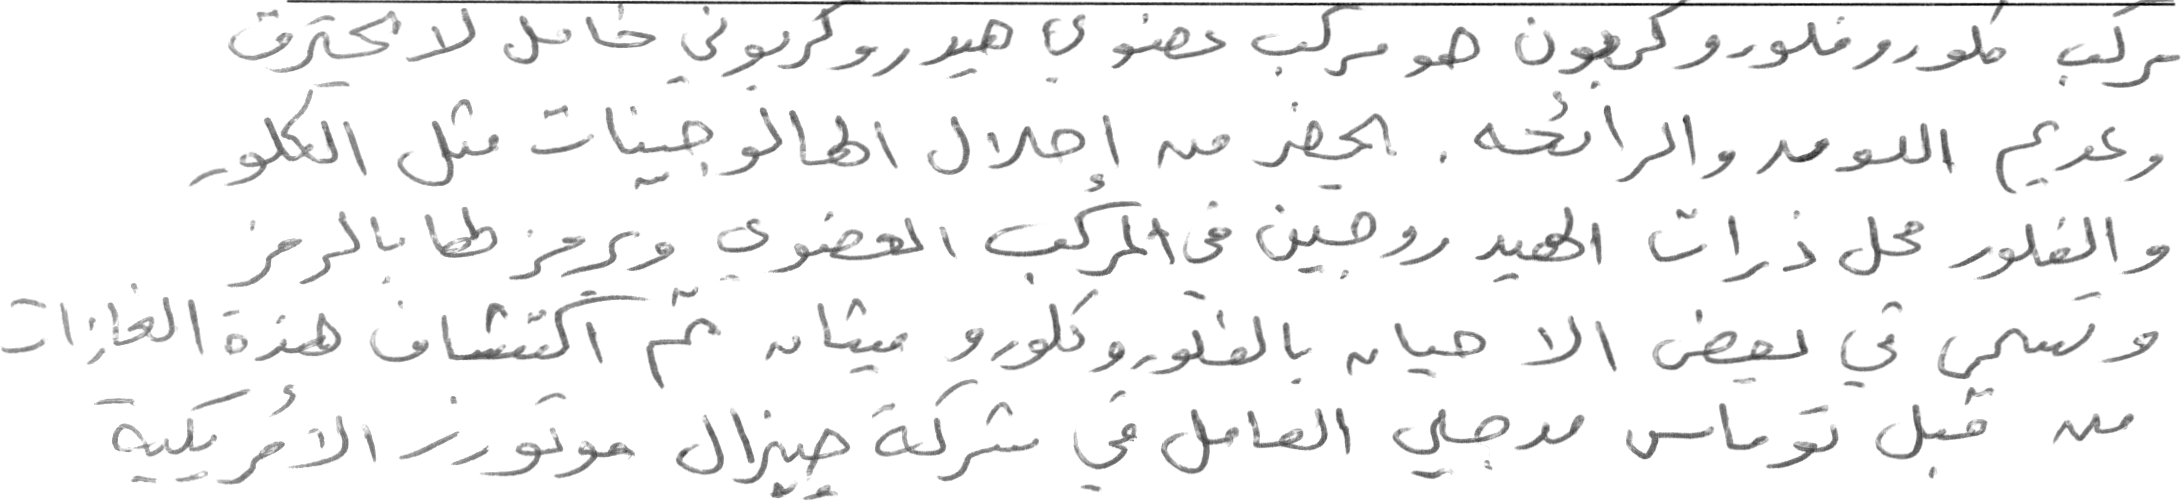 مركب كلوروفلوروكربون هو مركب عضوي هيدروكربوني خامل لا يحترق
وعديم اللون والرائحه . يحضر من إحلال الهالوجينات مثل الكلور
والفلور محل ذرات الهيدروجين في المركب العضوي ويرمز لها بالرمز
وتسمى في بعض الاحيان بالفلوروكلورو ميثان تم اكتشاف هذة الغازات
من قبل توماس مدجلي العامل في شركة جينرال موتورز الأمريكية